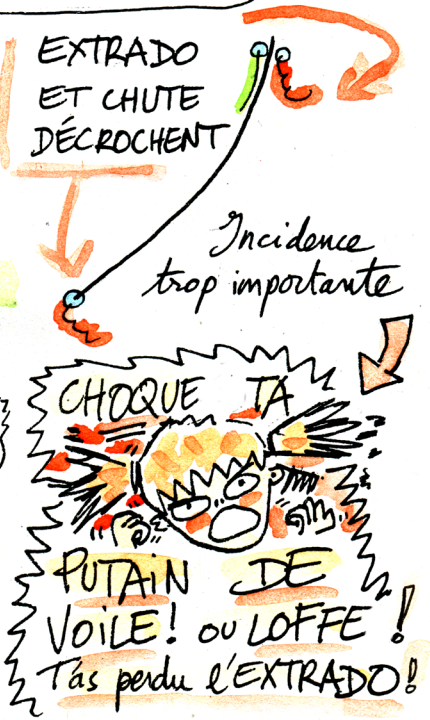 EXTRADO
ET CHUTE
DÉCROCHENT
Incidence
trop importante
CHOQUE TA
PUTAIN DE
VOILE! ou LOFFE !
T'as perdu l'EXTRADO!